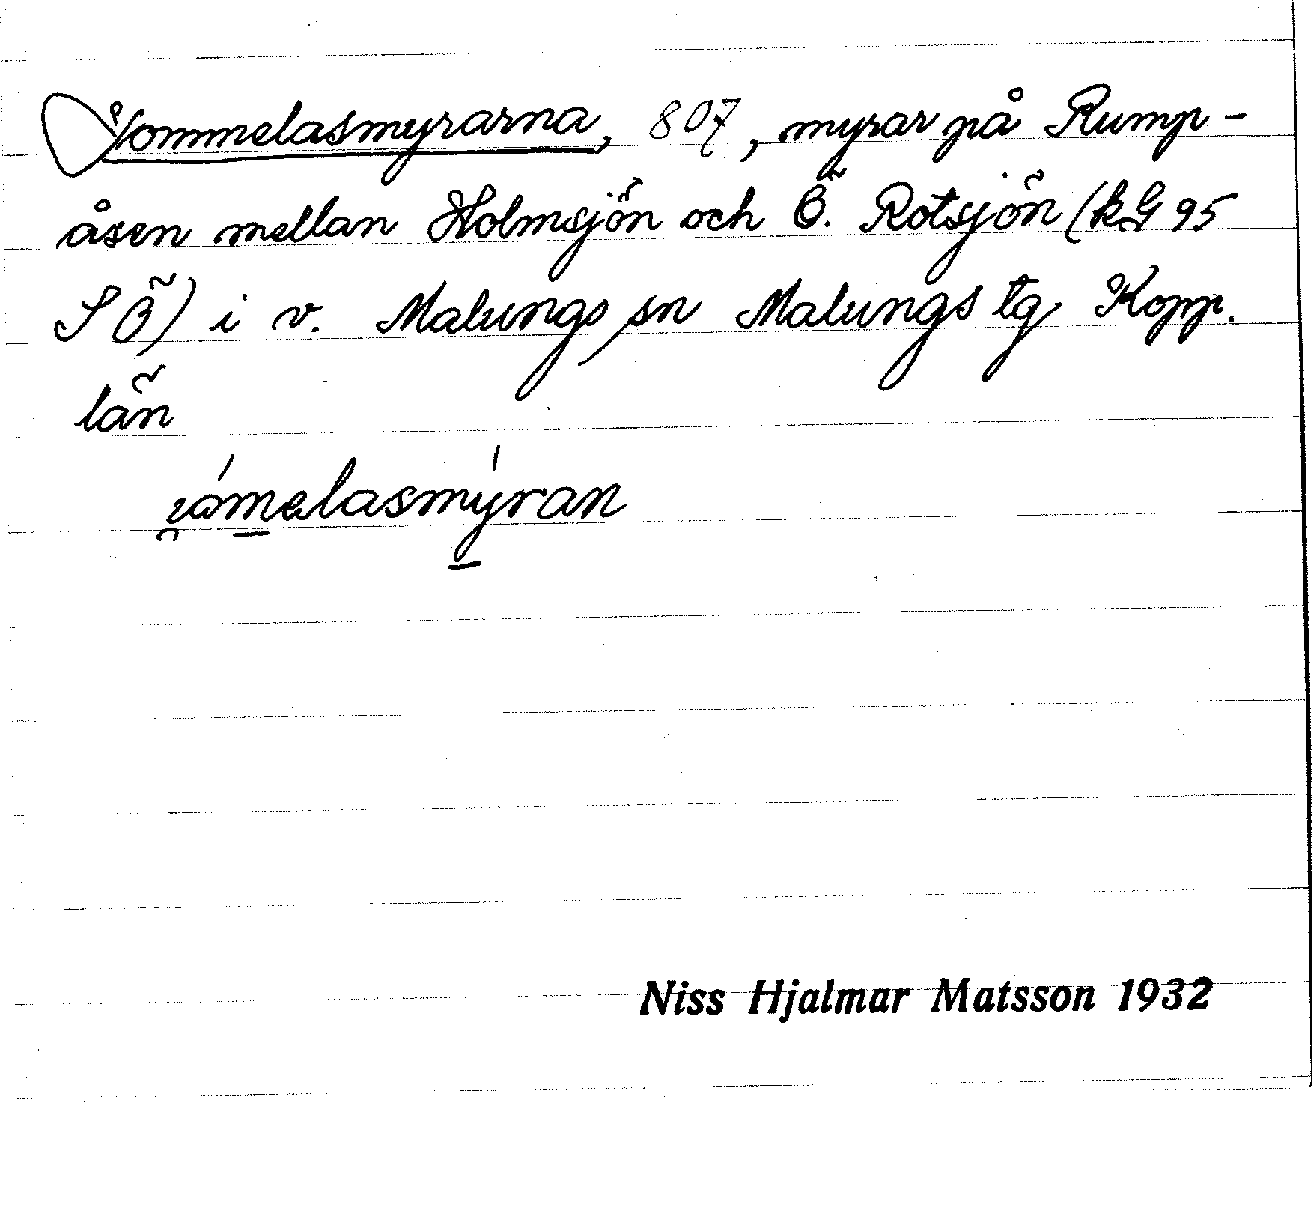 Jommelasmyrarna, 807, myrar på Rump-
åsen mellan Holmsjön och Ö. Rotsjön (kG 95
SÖ) i v. Malungs sn Malungs tg Kopp.
län
Niss Hjalmar Matsson 1932